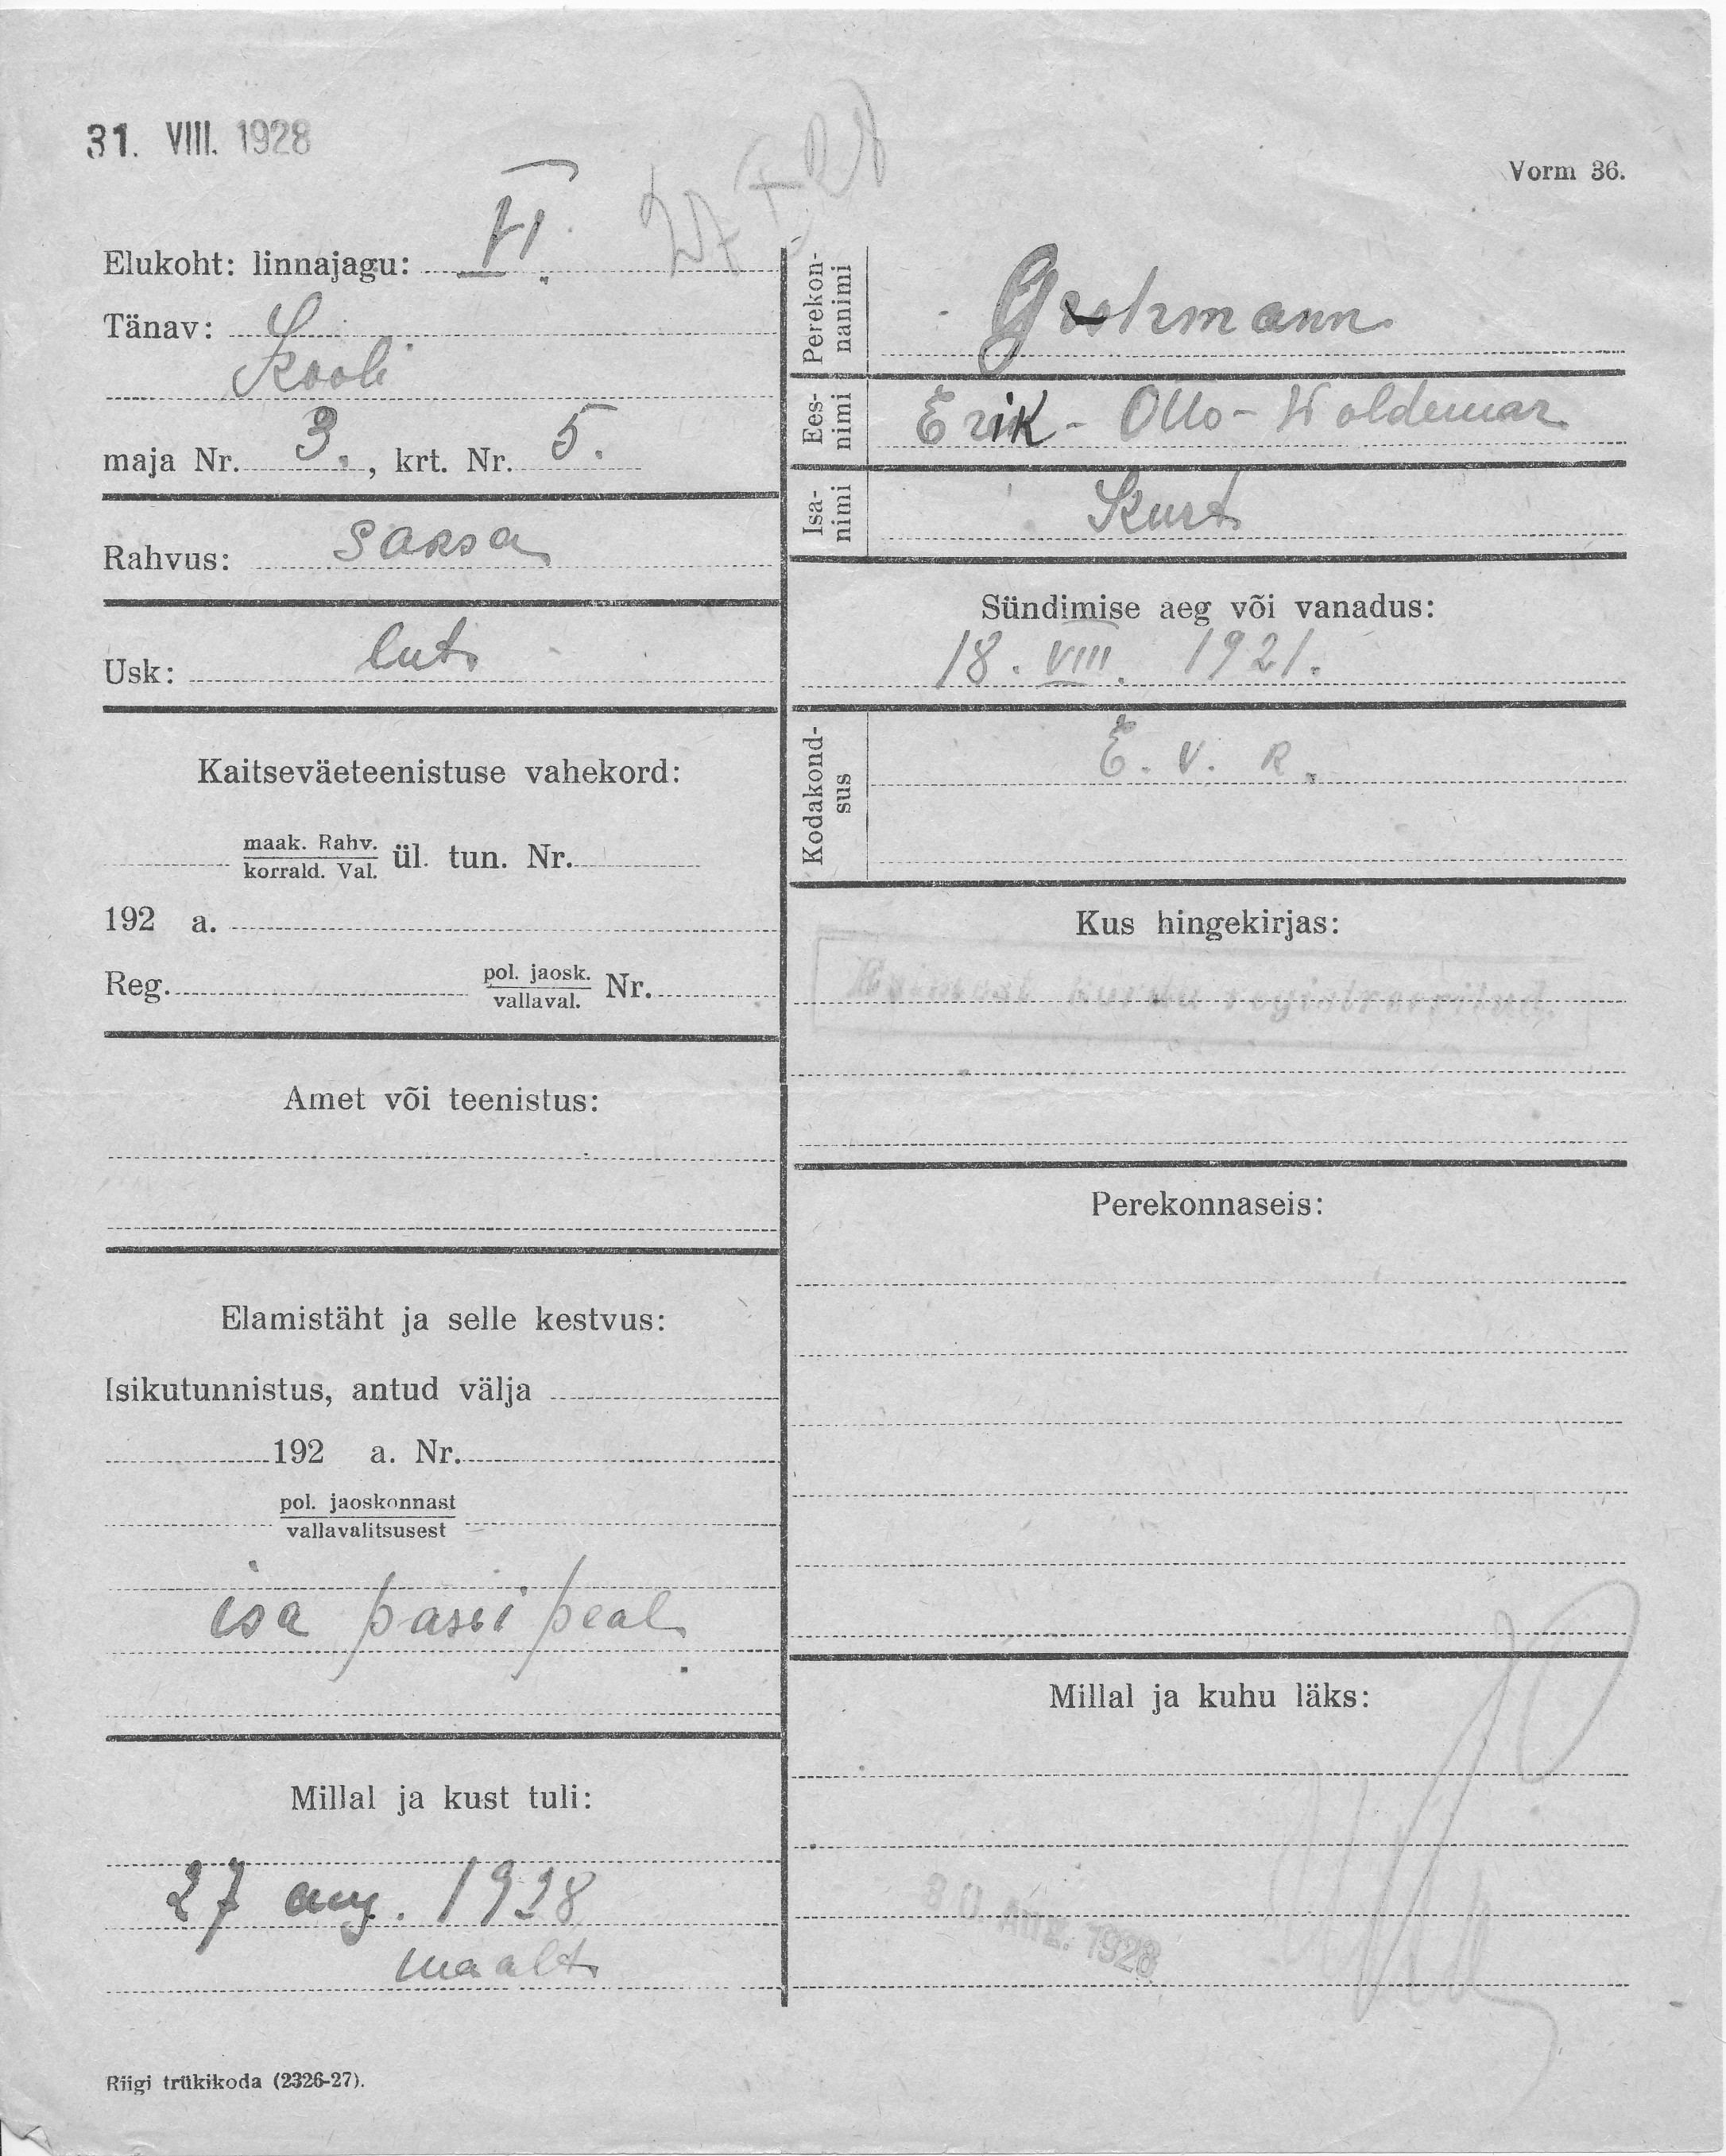 31. VIII. 1928
Vorm 36.
Elukoht: linnajagu: VI.
Tänav: S.
Kooli
maja Nr. 3., krt. Nr. 5.
Rahvus: saksa
Usk: lut.
Kaitseväeteenistuse vahekord:
maak. Rahv.
korrald. Val. ül. tun. Nr.
192 a.
Reg. pol. jaosk.
vallaval. Nr.
Amet või teenistus:
Elamistäht ja selle kestvus:
Isikutunnistus, antud välja
192 a. Nr.
pol. jaoskonnast
vallavalitsusest
isa passi peal.
Millal ja kust tuli:
27 aug. 1928
maalt
Perekon-
nanimi
Grohmann
Ees-
nimi
Erik - Otto - Woldemar
Isa-
nimi
Kurt
Sündimise aeg või vanadus:
18. VIII. 1921.
Kodakond-
sus
E. V. R.
Kus hingekirjas:
Esimest korda registreeritud.
Perekonnaseis:
Millal ja kuhu läks:
30. AUG. 1928
Riigi trükikoda (2326-27).